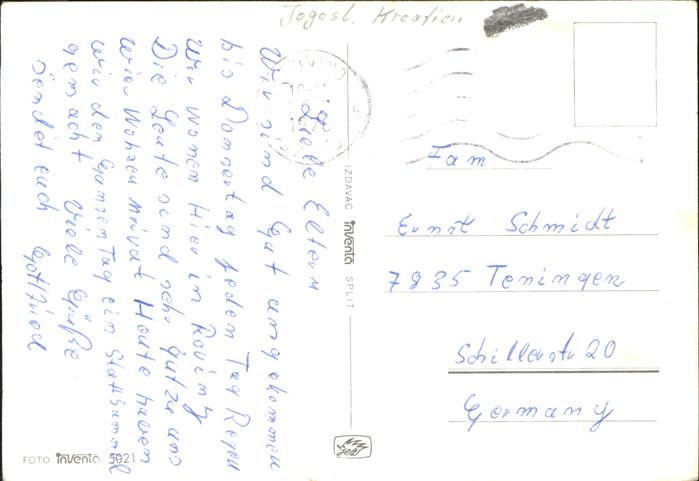 Jogosl. Kroatien
Liebe Eltern
Wir sind Gut angekommen
bis Donnertag jeden Tag Regen
Wir wonen Hier in Rovinj
Die Leute send sehr Gut zu uns
Wier Wohnen privat Heute haben
wir den Ganzen Tag ein Stattbummel
gemacht Viele Grüße
sendet euch Gottfried
IZDAVAČ inventa SPLIT
FOTO inventa 5021
Fam
Ernst Schmidt
7835 Teningen
Schillerstr 20
Germany